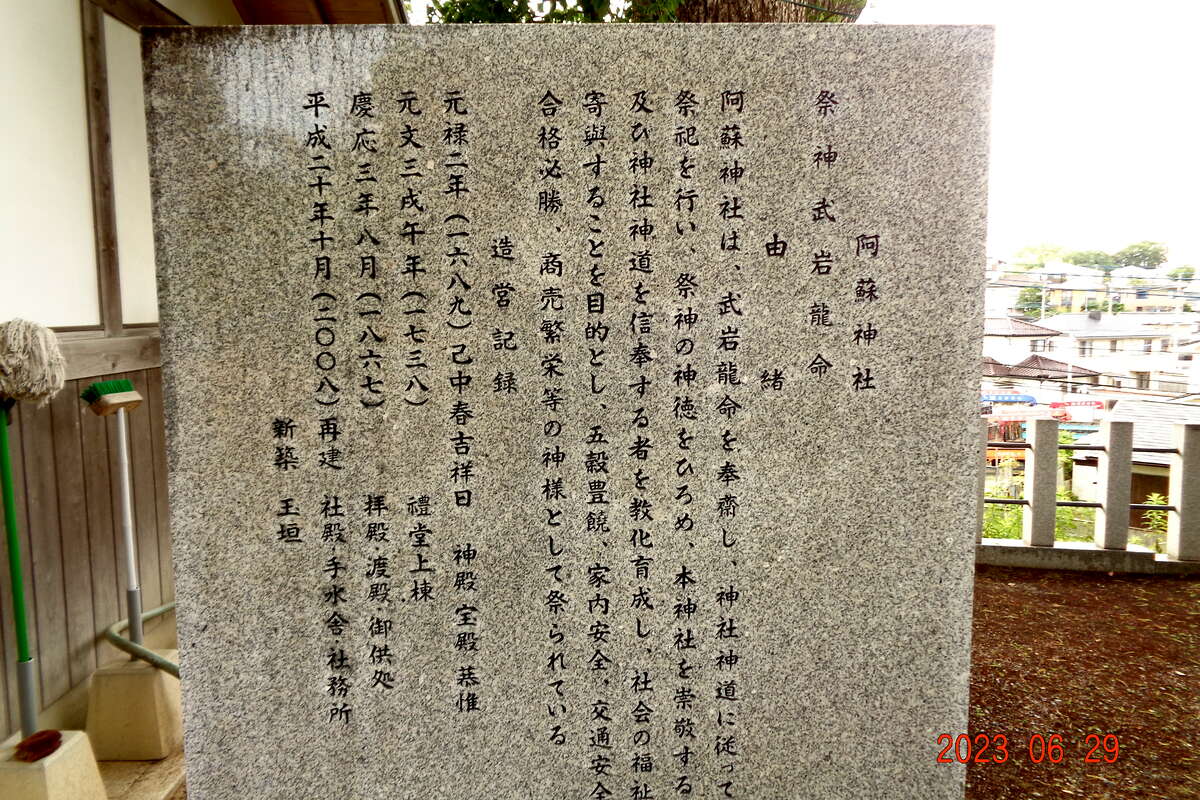 阿蘇神社
祭神武岩龍命
由緒
阿蘇神社は、武岩龍命を奉齋し、神社神道に従って
祭祀を行い、祭神の神徳をひろめ、本神社を崇敬する
及ひ神社神道を信奉する者を教化育成し、社会の福祉
寄與することを目的とし、五穀豊饒、家内安全、交通安全
合格必勝、商売繁栄等の神様として祭られている
造営記録
元禄二年(一六八九)己中春吉祥日 神殿 宝殿 恭惟
元文三戌午年(一七三八) 禮堂上棟
慶応三年八月(一八六七) 拝殿・渡殿・御供処
平成二十年十月(二〇〇八)再建 社殿・手水舎・社務所
新築 玉垣
2023 06 29